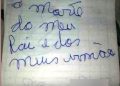 a morte
do meu
Pai e dos
meus irmão